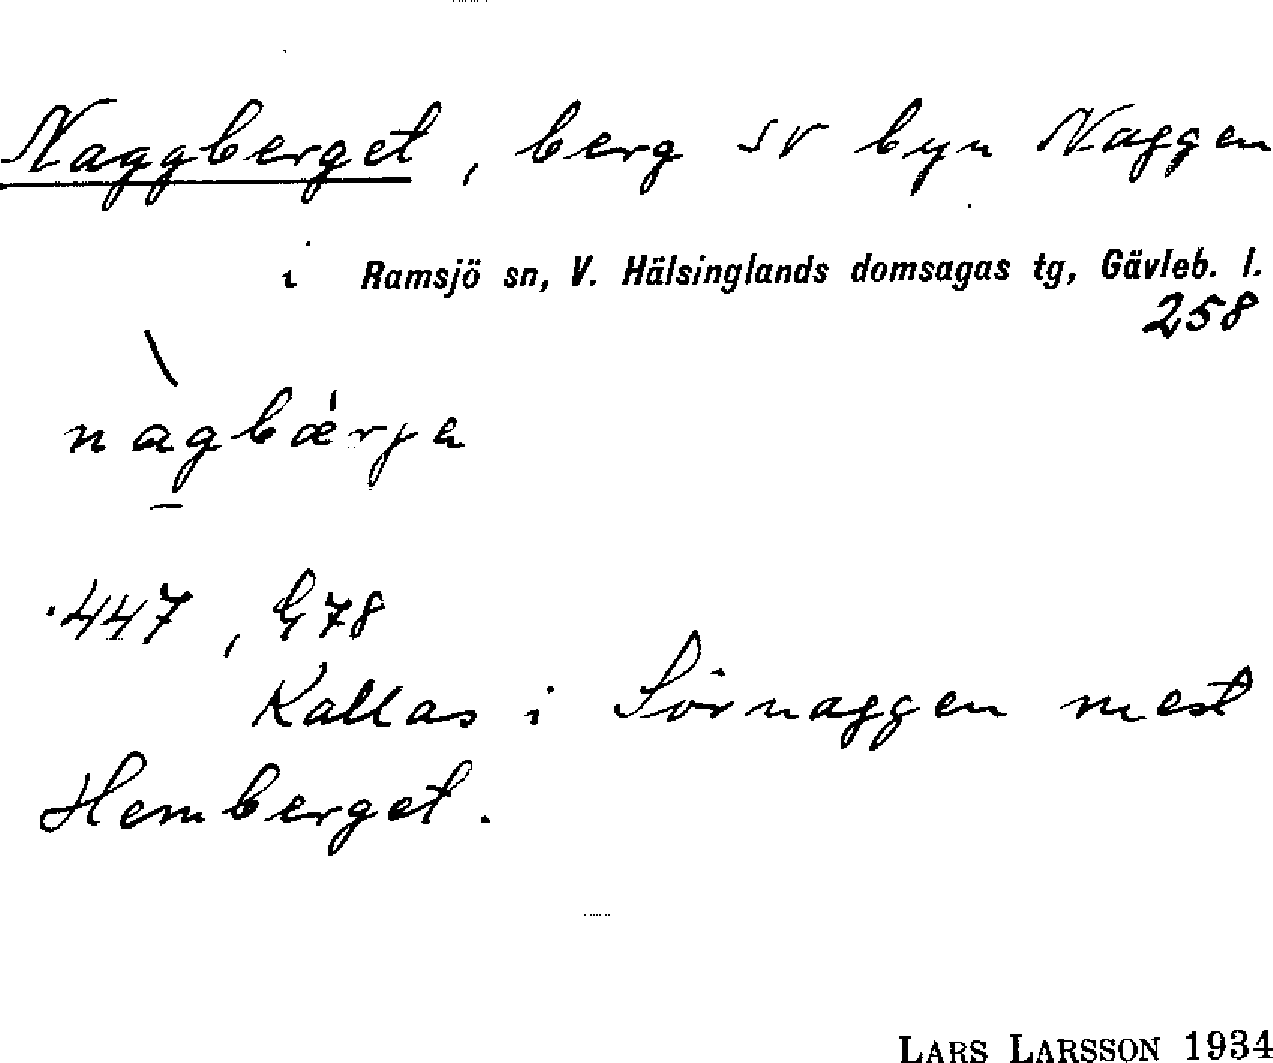 Naggberget, berg SV byn Naggen
i Ramsjö sn, V. Hälsinglands domsagas tg, Gävleb. l.
258
nàgbǽrja
447, G 78
Kallas i Sörnaggen mest
Hemberget.
LARS LARSSON 1934